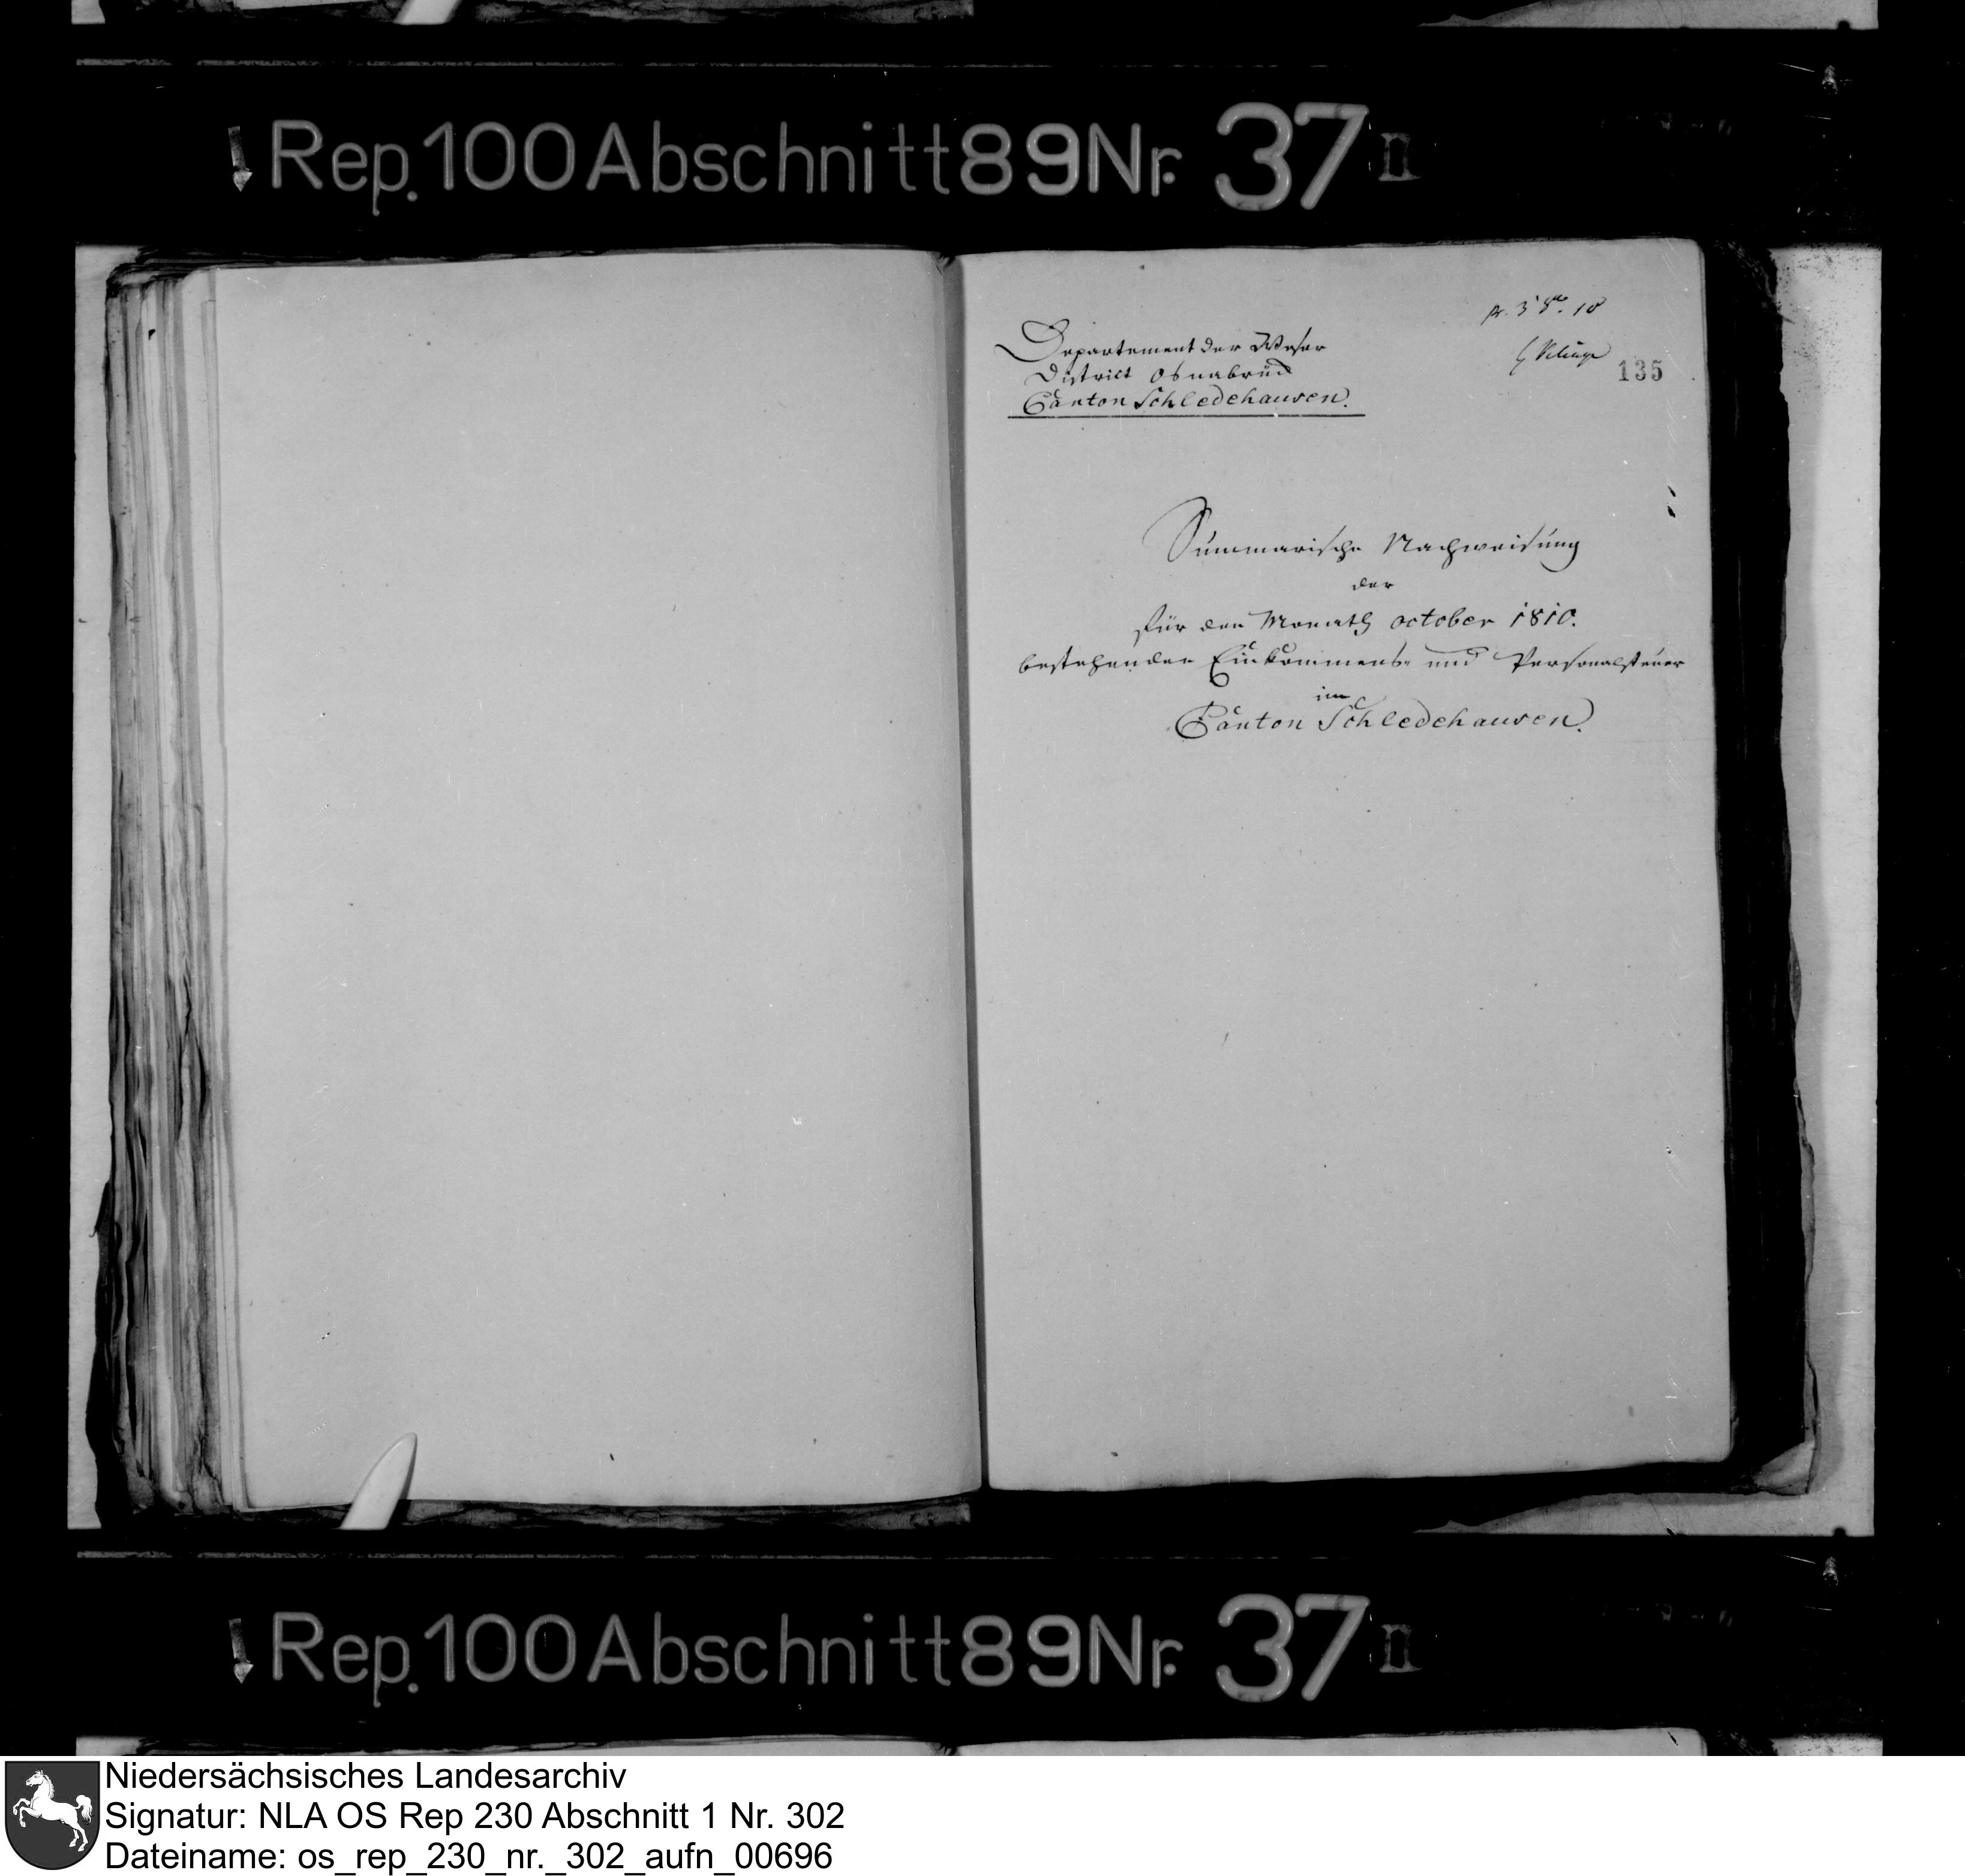 Rep. 100 Abschnitt 89 Nr. 37 II
Departement der Weser
District Osnabrück
Canton Schledehausen.
pr. 3 8br. 10
135
Summarische Nachweisung
der
für den Monath october 1810.
bestehenden Einkommens- und Personalsteuer
im
Canton Schledehausen.
Rep. 100 Abschnitt 89 Nr. 37 II
Niedersächsisches Landesarchiv
Signatur: NLA OS Rep 230 Abschnitt 1 Nr. 302
Dateiname: os_rep_230_nr._302_aufn_00696